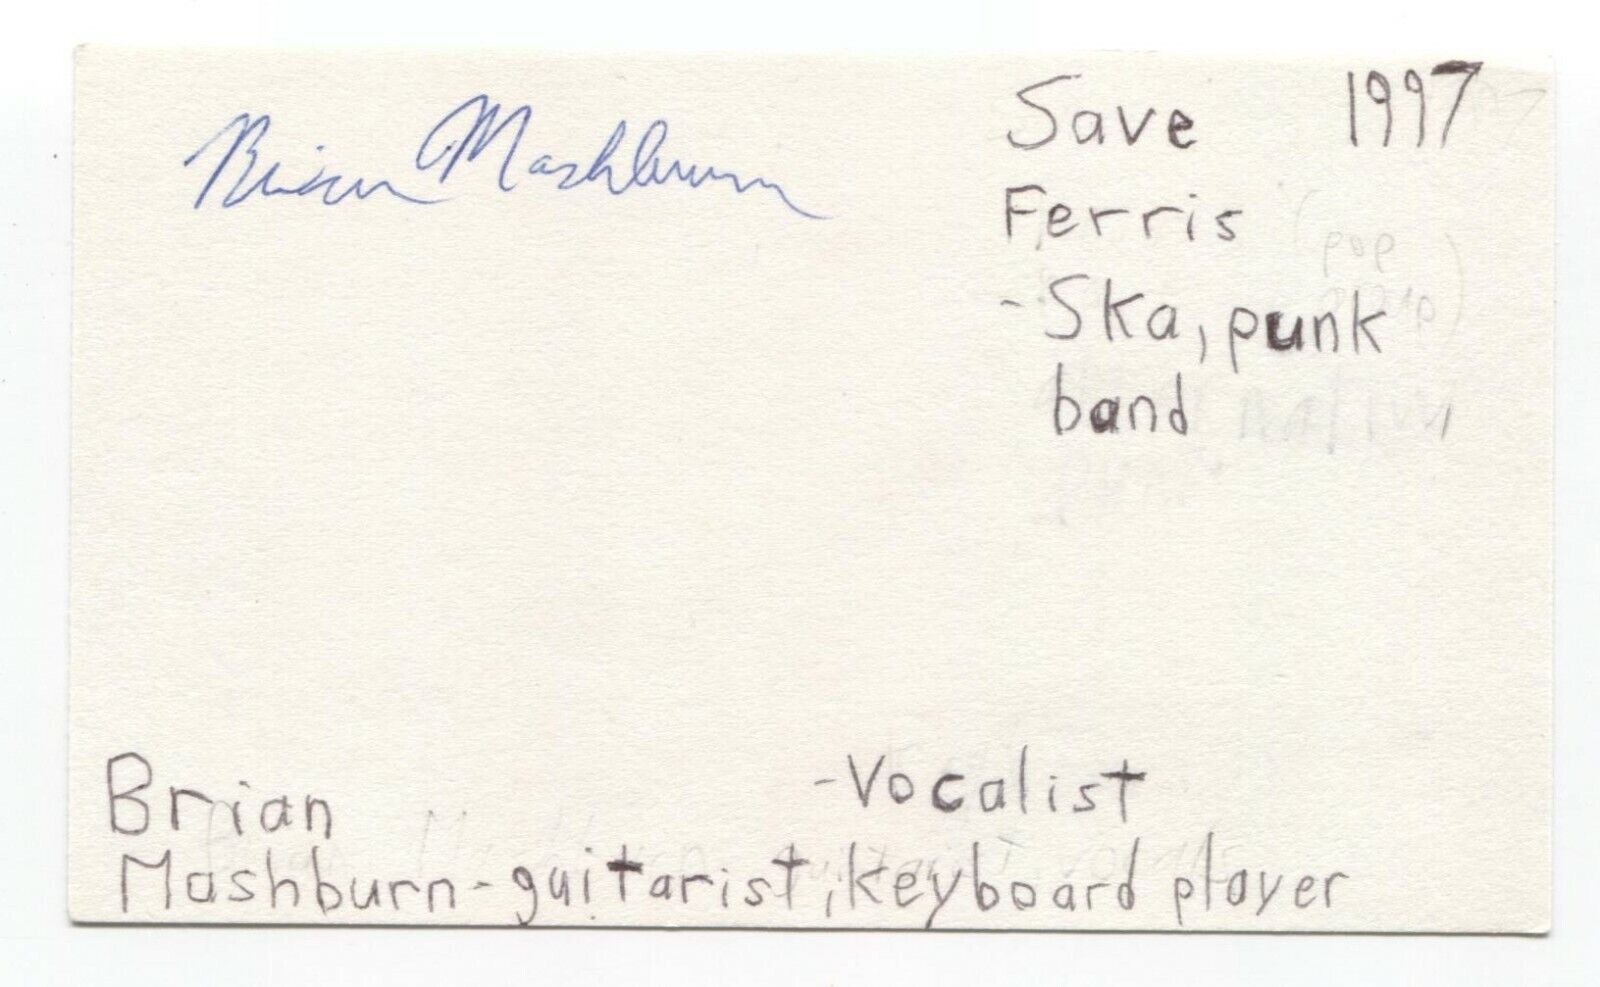 Brian Mashburn
Save 1997
Ferris
-Ska, punk
band
Brian -Vocalist
Mashburn-guitarist, keyboard player